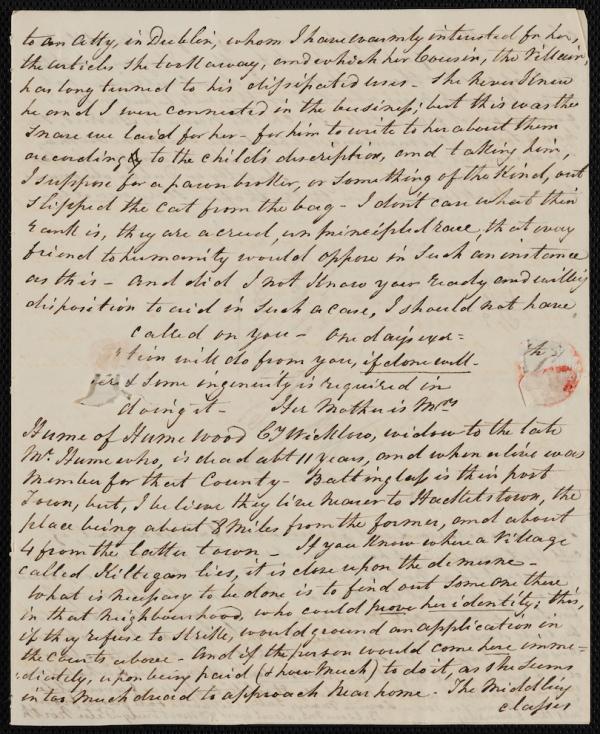 to an Atty, in Dublin, whom I have warmly intrusted for her,
the articles she took away, and which her Cousin, the Villain,
has long turned to his dissipated uses - She never knew
he and I were connected in the business; but this was the
snare we laid for her - for him to write to her about them
according to the child's discription, and taking him,
I suppose for a pawn broker, or something of the kind, out
slipped the cat from the bag - I don't care what their
rank is, they are a cruel, unprincipled race, that every
friend to humanity would oppose in such an instance
as this - And did I not know your ready and willing
disposition to aid in such a case, I should not have
called on you - One day's exer=
tion will do from you, if done well -
& some ingenuity is required in
doing it - Her Mother is Mrs
Hume of Humewood Cy Wicklow, widow to the late
Mr. Hume who, is dead abt 11 years, and when alive was
Member for that County - Baltinglass is their post
Town, but, I believe they live nearer to Hacketstown, the
place being about 8 Miles from the former, and about
4 from the latter town - If you know where a Village
called Kiltegan lies, it is close upon the demesne -
What is necessary to be done is to find out some one there
in that neighbourhood, who could prove her identity; this,
if they refuse to strike, would ground an application in
the Courts above - And if the person would come here imme=
diately, upon being paid (& how Much) to do it, as she seems
in too much dread to approach near home - The Middling
classes